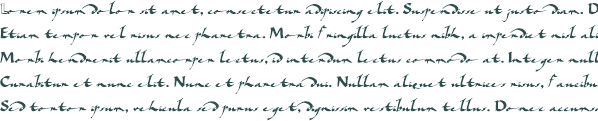 Lorem ipsum dolor sit amet, consectetur adipiscing elit. Suspendisse ut justo diam. D
Etiam tempor vel risus nec pharetra. Morbi fringilla luctus nibh, a imperdiet nisl ali
Morbi hendrerit ullamcorper lectus, id interdum lectus commodo at. Integer null
Curabitur et nunc elit. Nunc et pharetra dui. Nullam aliquet ultrices risus, faucibu
Sed tortor ipsum, vehicula sed purus eget, dignissim vestibulum tellus. Donec accums